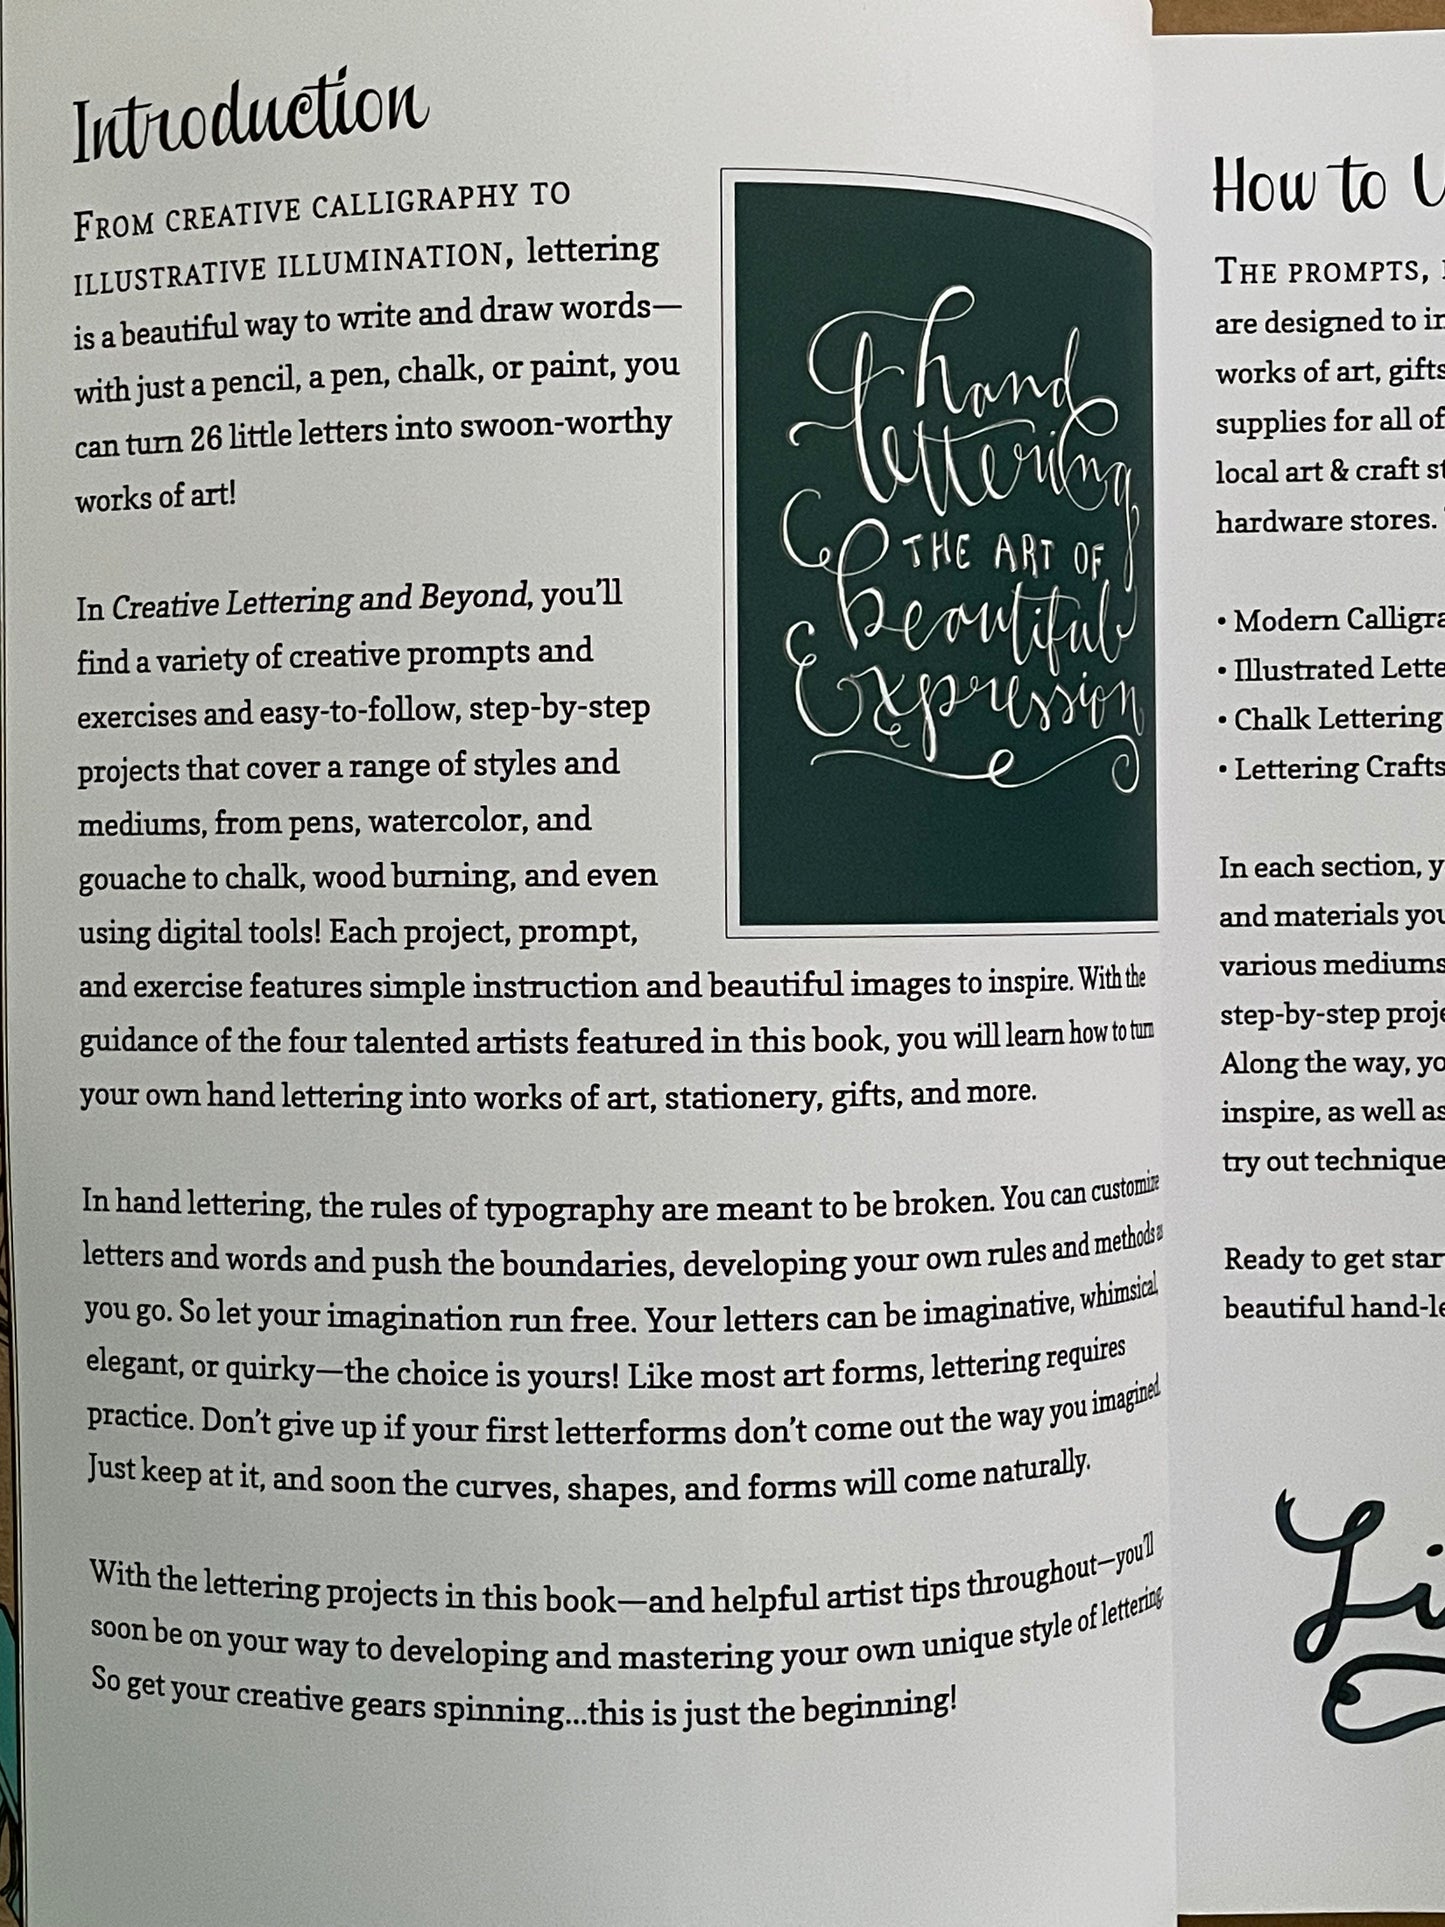 Introduction
FROM CREATIVE CALLIGRAPHY TO
ILLUSTRATIVE ILLUMINATION, lettering
is a beautiful way to write and draw words—
with just a pencil, a pen, chalk, or paint, you
can turn 26 little letters into swoon-worthy
works of art!
hand
lettering
THE ART OF
beautiful
Expression
In Creative Lettering and Beyond, you'll
find a variety of creative prompts and
exercises and easy-to-follow, step-by-step
projects that cover a range of styles and
mediums, from pens, watercolor, and
gouache to chalk, wood burning, and even
using digital tools! Each project, prompt,
and exercise features simple instruction and beautiful images to inspire. With the
guidance of the four talented artists featured in this book, you will learn how to turn
your own hand lettering into works of art, stationery, gifts, and more.
In hand lettering, the rules of typography are meant to be broken. You can customize
letters and words and push the boundaries, developing your own rules and methods as
you go. So let your imagination run free. Your letters can be imaginative, whimsical,
elegant, or quirky—the choice is yours! Like most art forms, lettering requires
practice. Don't give up if your first letterforms don't come out the way you imagined.
Just keep at it, and soon the curves, shapes, and forms will come naturally.
With the lettering projects in this book—and helpful artist tips throughout—you'll
soon be on your way to developing and mastering your own unique style of lettering.
So get your creative gears spinning...this is just the beginning!
How to
THE PROMPTS,
are designed to
works of art, gifts
supplies for all of
local art & craft
hardware stores.
• Modern
• Illustrated
• Chalk Lettering
• Lettering Crafts
In each section,
and materials
various mediums
step-by-step
Along the way,
inspire, as well as
try out
Ready to get
beautiful